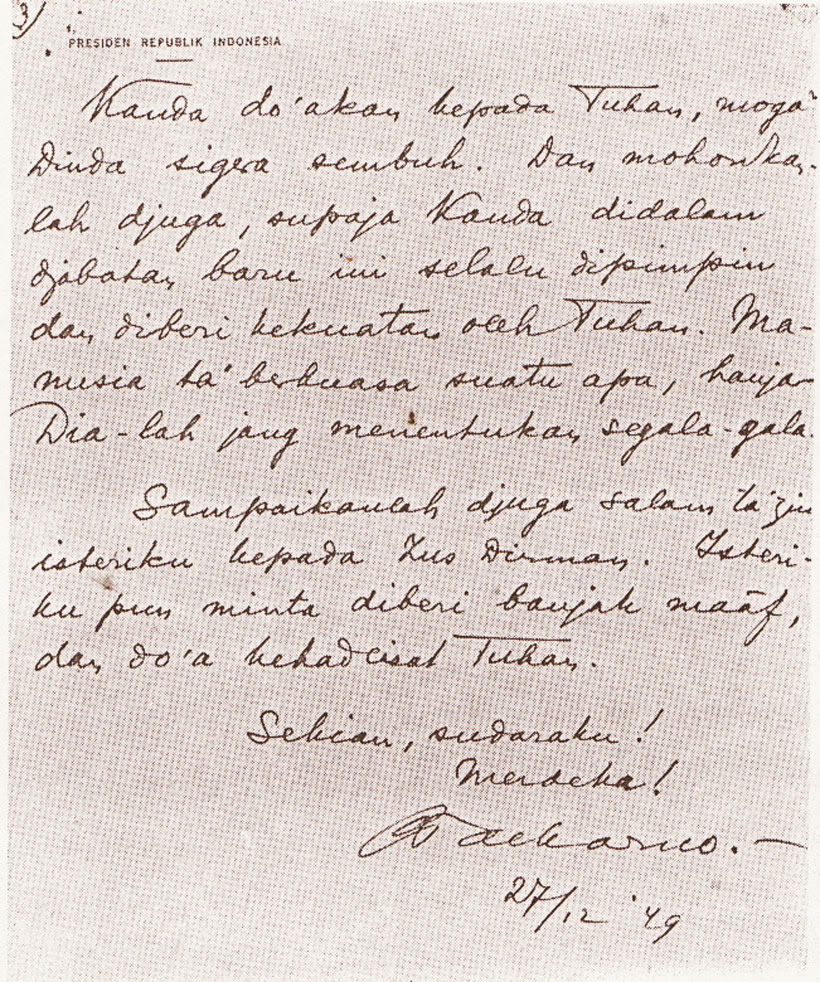 3)
PRESIDEN REPUBLIK INDONESIA
Kanda do'akan kepada Tuhan, moga²
Dinda sigera sembuh. Dan mohonkan-
lah djuga, supaja Kanda didalam
djabatan baru ini selalu dipimpin
dan diberi kekuatan oleh Tuhan. Ma-
nusia ta' berkuasa suatu apa, hanja
Dia-lah jang menentukan segala-gala.
Sampaikanlah djuga salam ta'zim
isteriku kepada Zus Dirman. Isteri-
ku pun minta diberi banjak maäf,
dan do'a kehadlirat Tuhan.
Sekian, sudaraku!
Merdeka!
Soekarno.—
27/12 '49